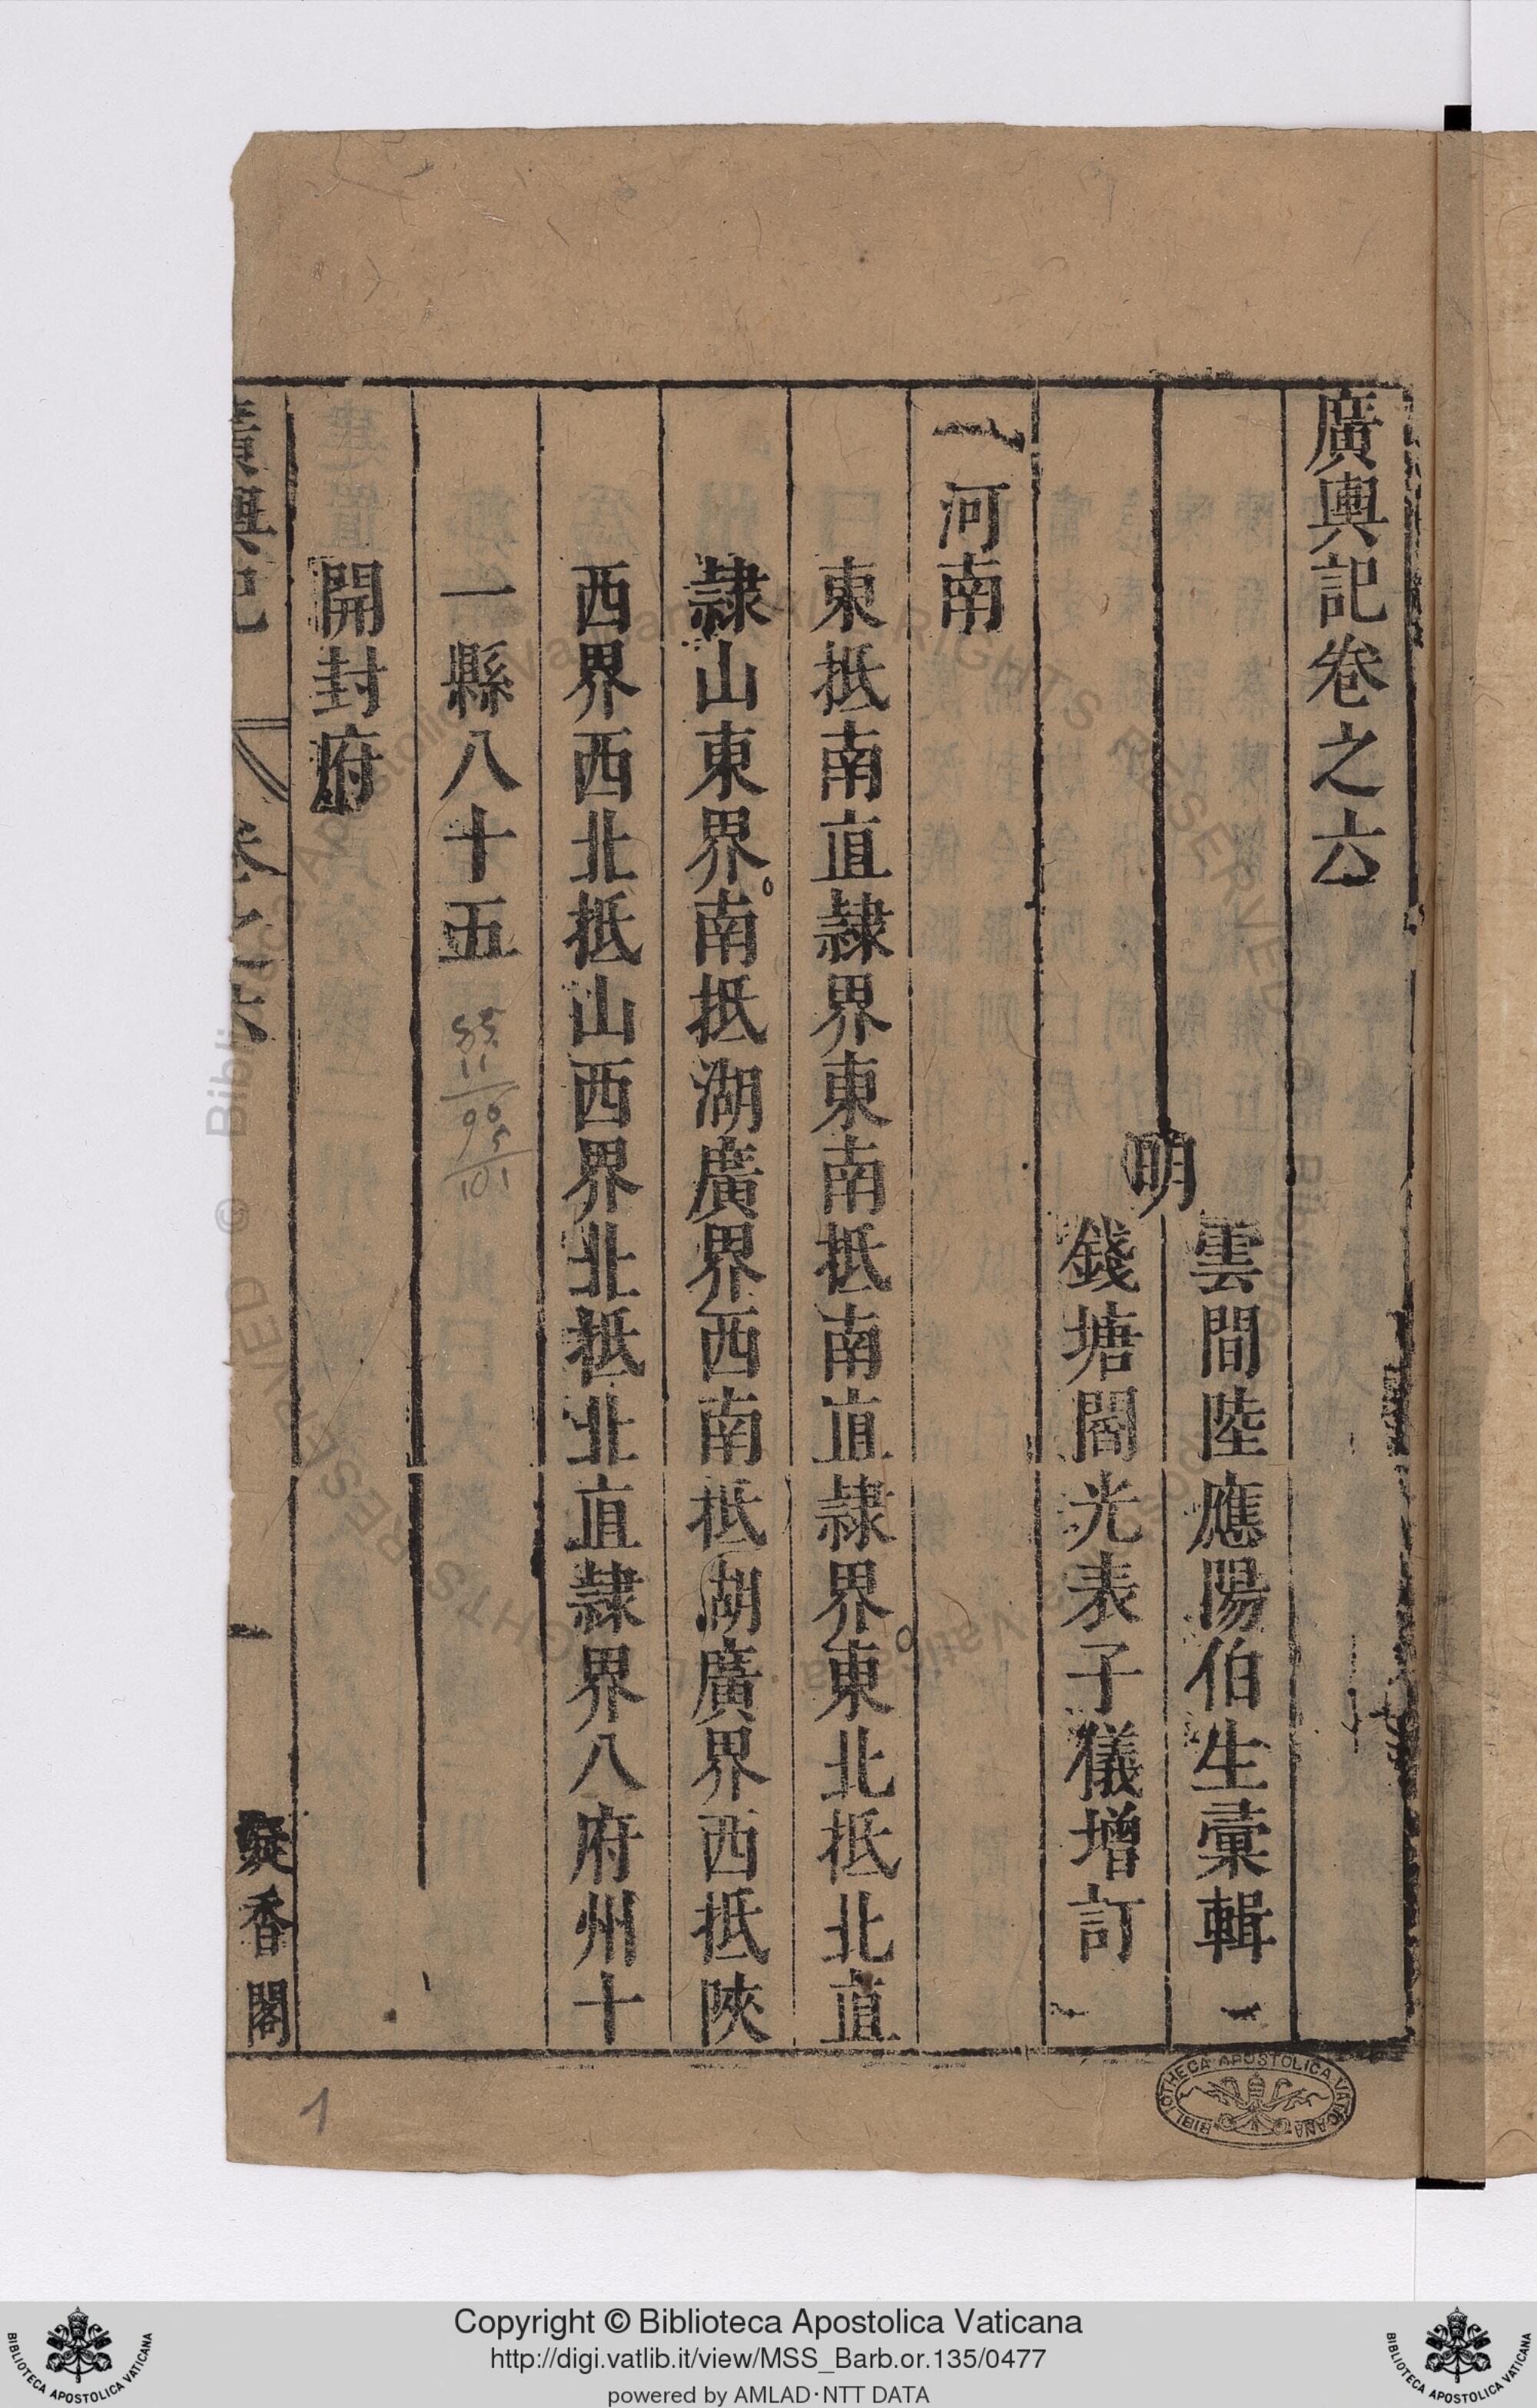 廣輿記卷之六
明
雲間陸應陽伯生彙輯
錢塘閻光表子儀增訂
河南
東抵南直隸界東南抵南直隸界東北抵北直
隸山東界南抵湖廣界西南抵湖廣界西抵陝
西界西北抵山西界北抵北直隸界八府州十
一縣八十五
85
11
96
5
101
開封府
廣輿記
卷之六
一
凝香閣
1
BIBLIOTHECA APOSTOLICA VATICANA
Copyright © Biblioteca Apostolica Vaticana
http://digi.vatlib.it/view/MSS_Barb.or.135/0477
powered by AMLAD·NTT DATA
BIBLIOTECA APOSTOLICA VATICANA
BIBLIOTECA APOSTOLICA VATICANA